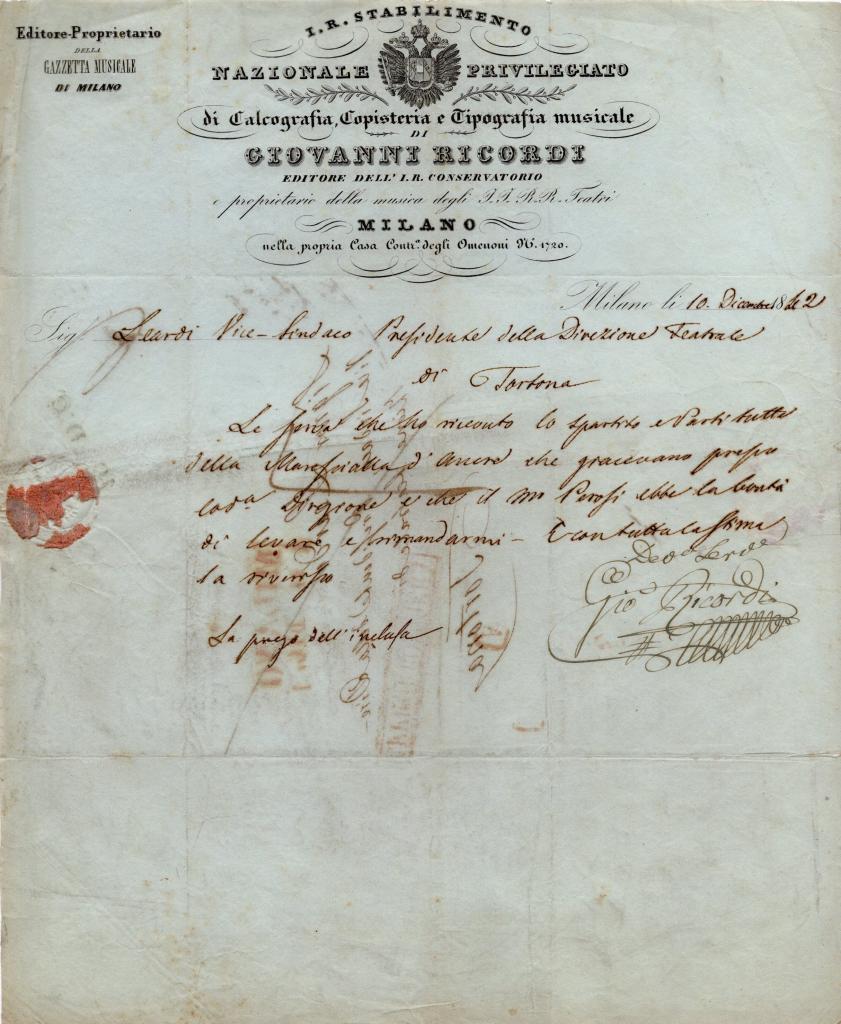 Editore-Proprietario
DELLA
GAZZETTA MUSICALE
DI MILANO
I. R. STABILIMENTO
NAZIONALE PRIVILEGIATO
di Calcografia, Copisteria e Tipografia musicale
DI
GIOVANNI RICORDI
EDITORE DELL' I. R. CONSERVATORIO
e proprietario della musica degli I. I. R. R. Teatri
MILANO
nella propria Casa Contr.ª degli Omenoni N.º 1720.
Milano li 10. Dicembre 1842
Sig. Leardi Vice-Sindaco Presidente della Direzione Teatrale
di Tortona
Le che ho ricevuto lo spartito e Parti tutte
della Marescialla d'Ancre che giacevano presso
cod.ª Direzione e che il Mo Perosi ebbe la bontà
di levare e rimandarmi - E con tutta la stima
la riverisco
Dev.º Serv.e
Gio. Ricordi
La prego dell'inclusa